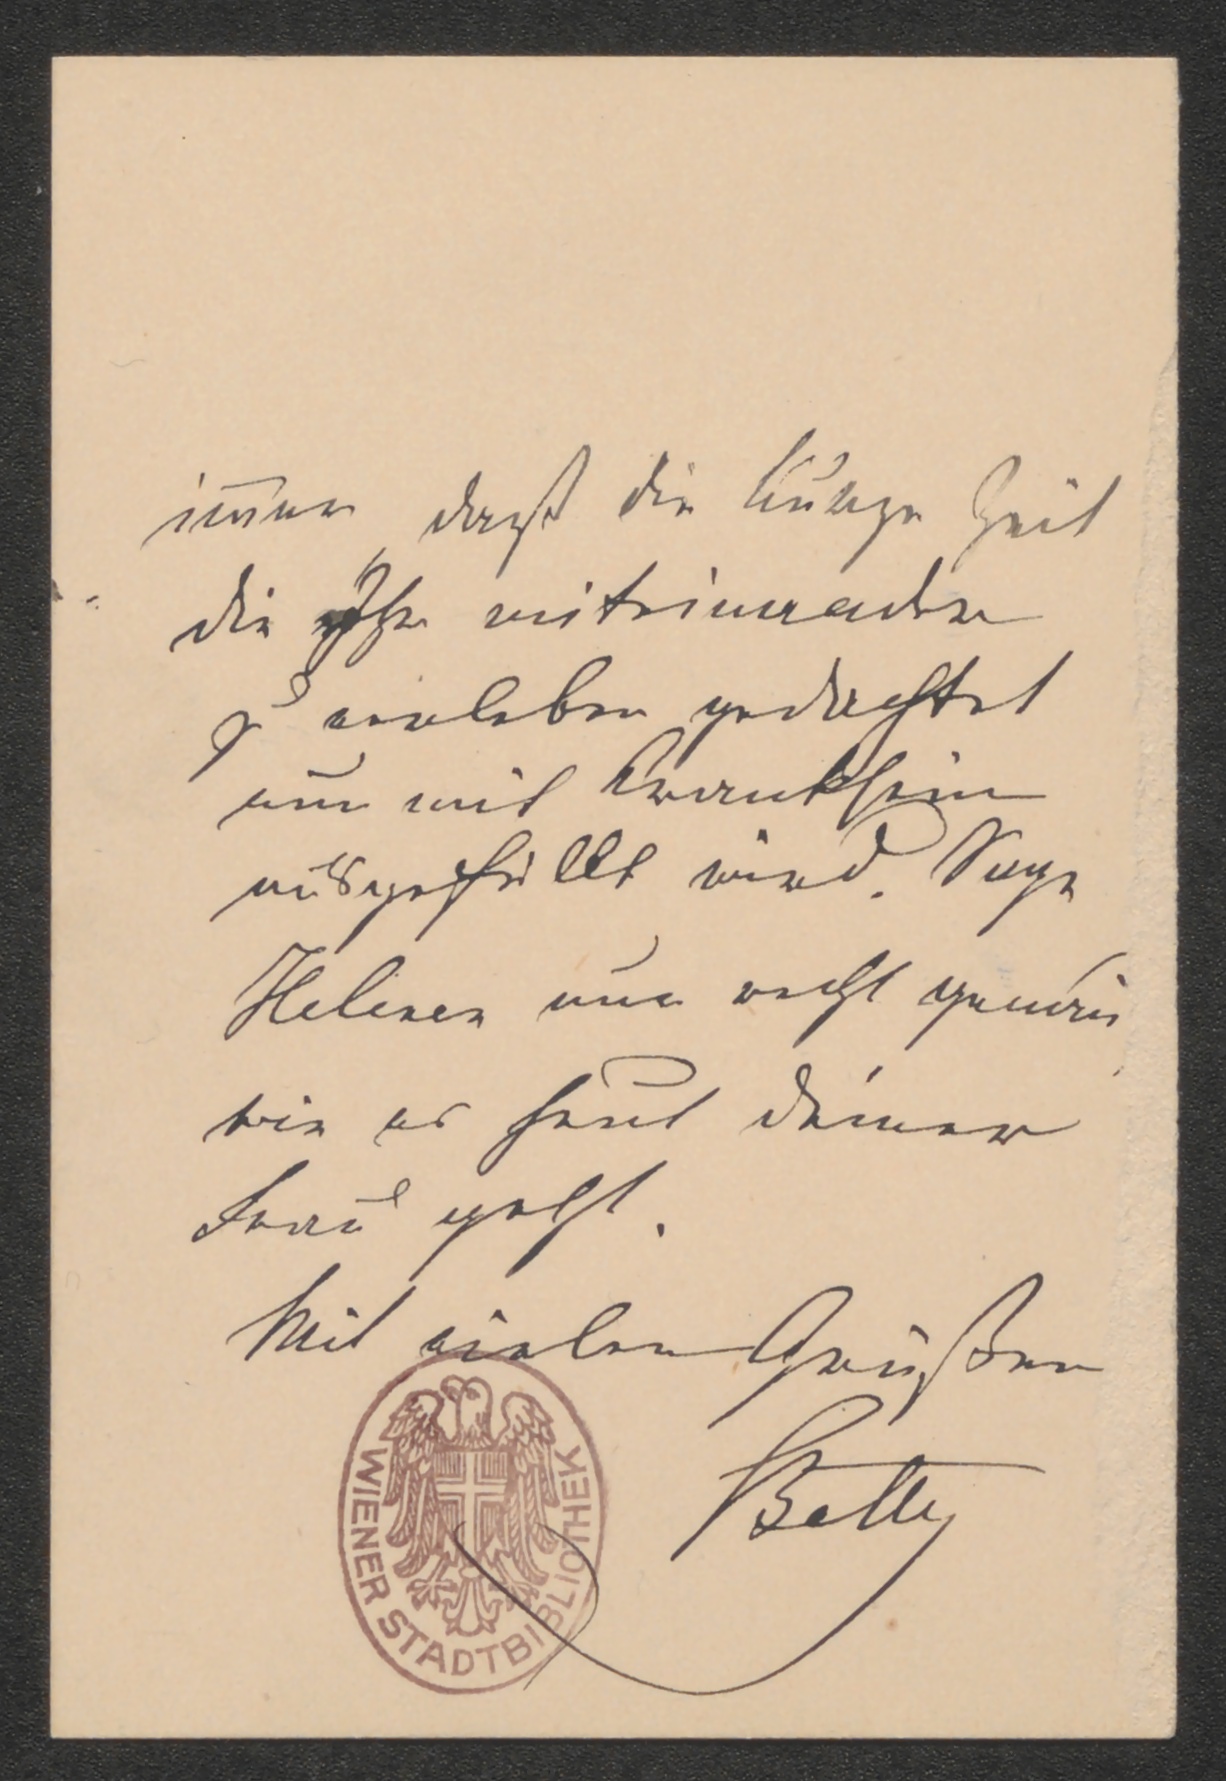 im̅er daß die kurze Zeit
die Ihr miteinander
zu verleben gedachtet
nun mit Kranksein
ausgefüllt wird. Sage
Helenen nur recht genau
wie es heut deiner
Frau geht.
Mit vielen Grüßen
Betty
WIENER STADTBIBLIOTHEK